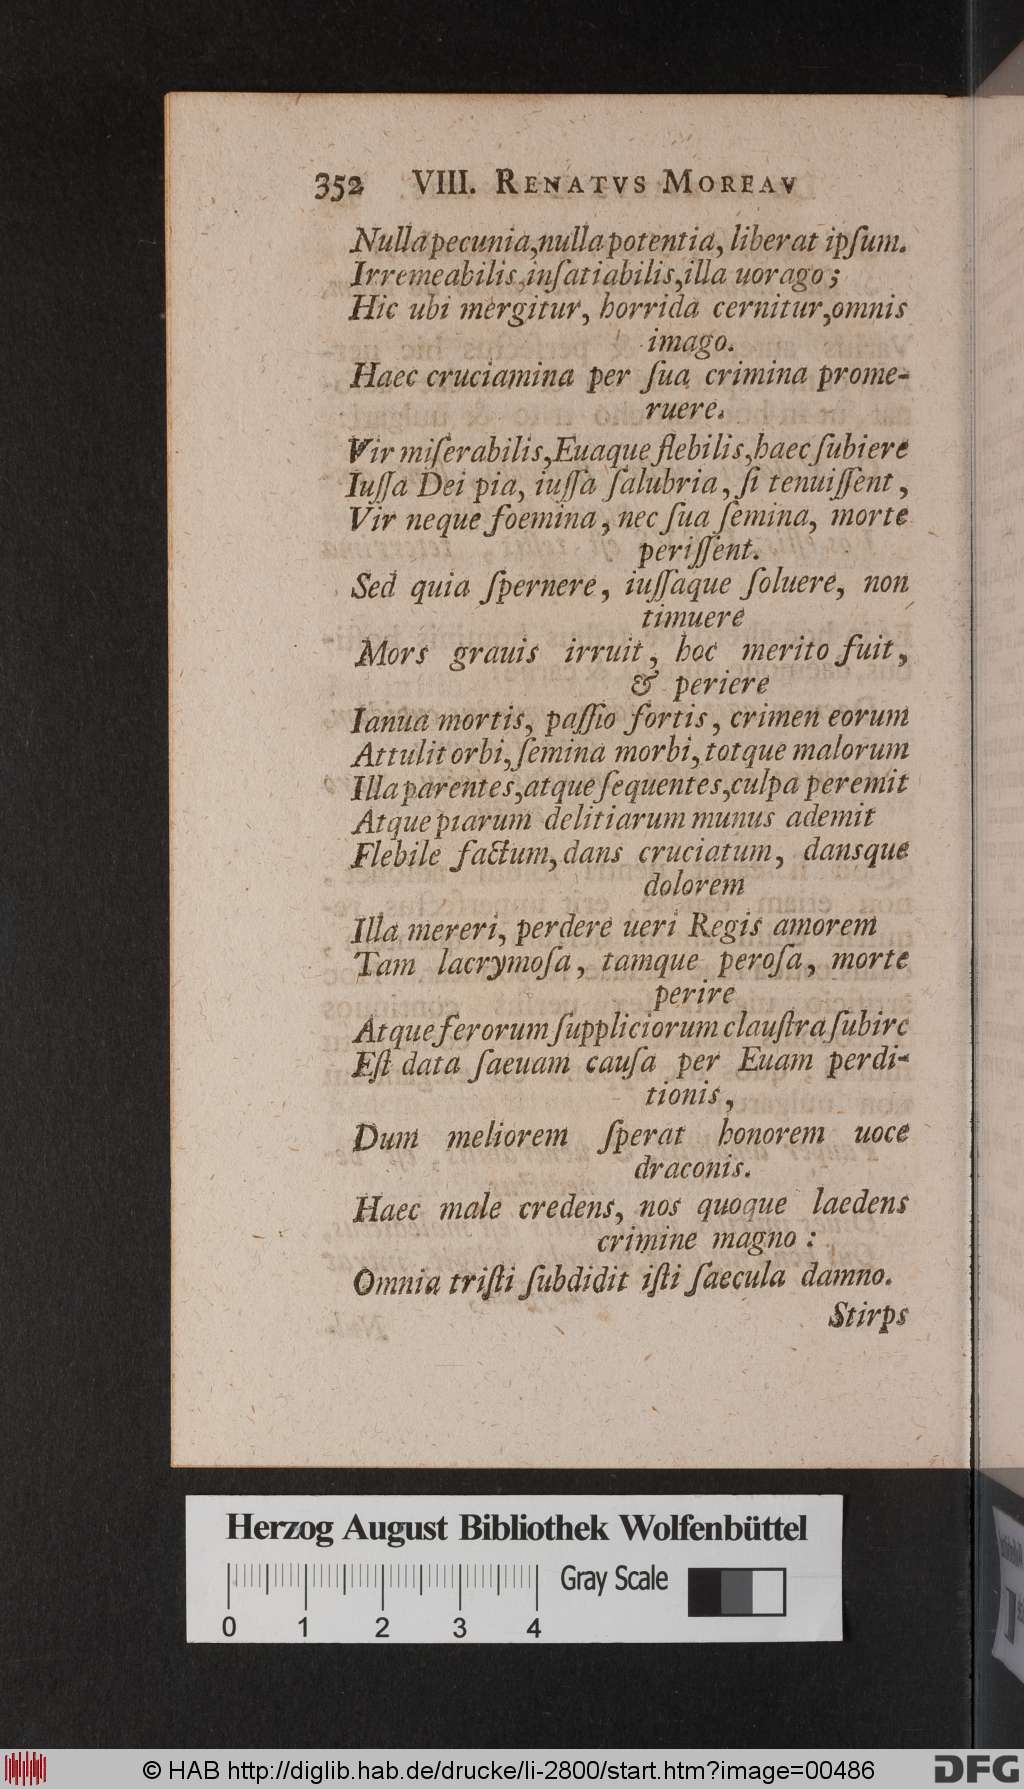 352 VIII. RENATVS MOREAV
Nulla pecunia,nulla potentia, liberat ipſum.
Irremeabilis,inſatiabilis,illa uorago;
Hic ubi mergitur, horrida cernitur,omnis
imago.
Haec cruciamina per ſua crimina prome-
ruere.
Vir miſerabilis,Euaque flebilis,haec ſubiere
Iuſſa Dei pia, iuſſa ſalubria, ſi tenuiſſent,
Vir neque foemina, nec ſua ſemina, morte
periſſent.
Sed quia ſpernere, iuſſaque ſoluere, non
timuere
Mors grauis irruit, hoc merito fuit,
& periere
Ianua mortis, paſſio fortis, crimen eorum
Attulit orbi, ſemina morbi, totque malorum
Illa parentes,atque ſequentes,culpa peremit
Atque piarum delitiarum munus ademit
Flebile factum,dans cruciatum, dansque
dolorem
Illa mereri, perdere ueri Regis amorem
Tam lacrymoſa, tamque peroſa, morte
perire
Atque ferorum ſuppliciorum clauſtra ſubire
Eſt data ſaeuam cauſa per Euam perdi-
tionis,
Dum meliorem ſperat honorem uoce
draconis.
Haec male credens, nos quoque laedens
crimine magno :
Omnia triſti ſubdidit iſti ſaecula damno.
Stirps
Herzog August Bibliothek Wolfenbüttel
Gray Scale
0 1 2 3 4
© HAB http://diglib.hab.de/drucke/li-2800/start.htm?image=00486
DFG